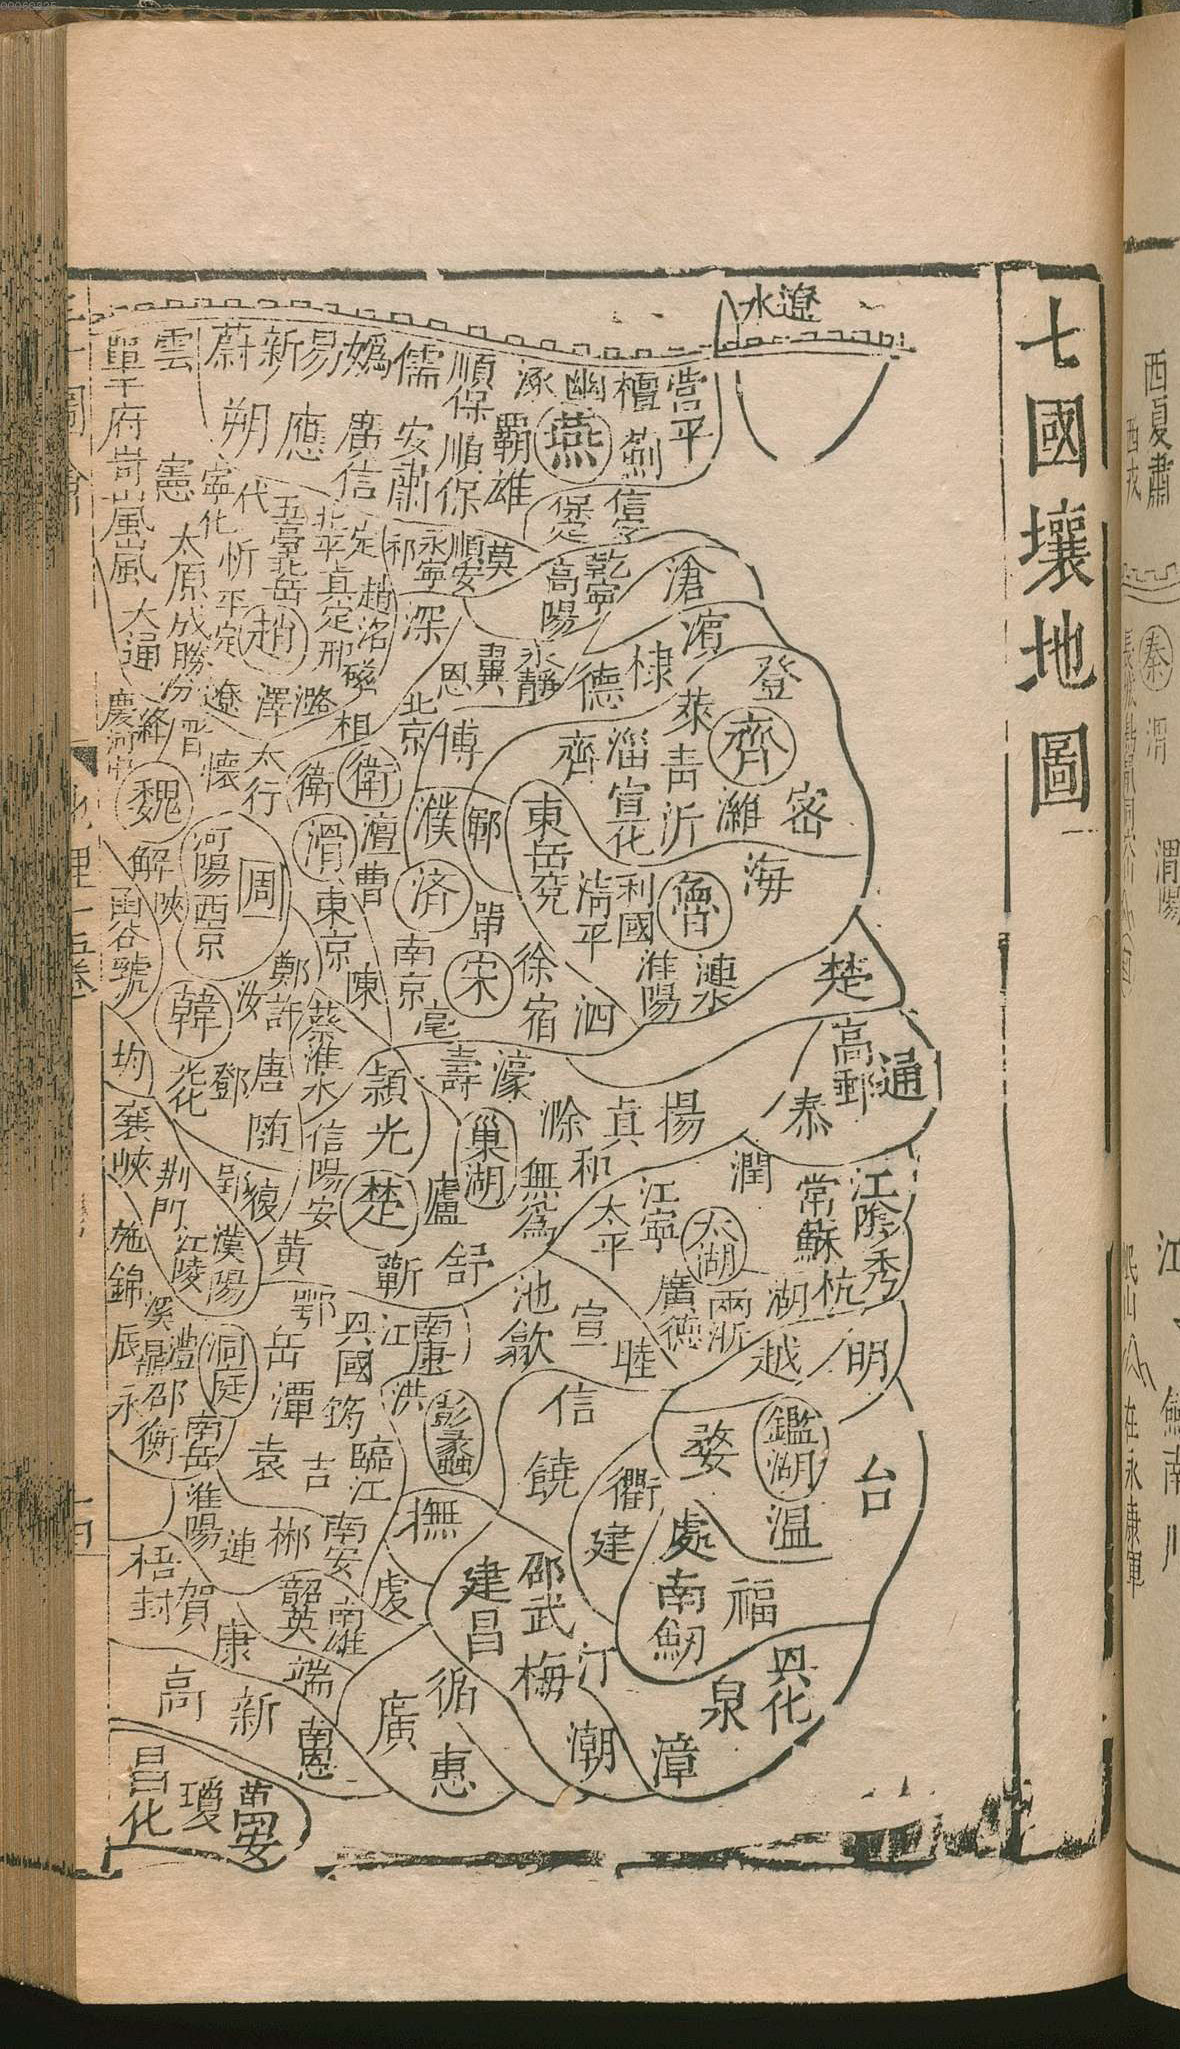 七國壤地圖
遼水
營平
檀
薊
幽
涿
燕
順
保
順
保
霸
雄
儒
安肅
媯
廣信
易
新
蔚
應
朔
雲
單于府
岢嵐
嵐
憲
寧化
代
五臺
北岳
北平
定
祁
永寧
順安
莫
保定
信安
高陽
乾寧
滄
濱
棣
德
永靜
冀
恩
深
趙
洺
磁
真定
邢
趙
忻
平定
太原
大通
遼
澤
潞
相
北京
博
登
萊
齊
密
濰
青
沂
淄
宣化
齊
東岳
兗
鄆
濮
澶
衛
衛
滑
太行
懷
晋
絳
慶
魏
解
陝
函谷
虢
河陽
西京
周
東京
曹
済
單
南京
宋
亳
徐
宿
泗
清平
利國
魯
海
淮陽
漣水
楚
高郵
通
泰
揚
真
滁
濠
壽
潁
光
陳
蔡
淮水
鄭
許
汝
韓
均
鄧
唐
随
信陽
安
楚
巢湖
廬
無為
和
舒
蘄
黄
郢
復
襄
峽
荆門
江陵
漢陽
施
錦
溪
辰
鼎
澧
洞庭
岳
鄂
興國
江
南康
洪
彭蠡
池
歙
宣
太平
江寧
潤
太湖
常
蘇
江陰
秀
杭
湖
兩浙
廣德
睦
越
明
台
鑑湖
婺
衢
信
饒
温
處
建
南劒
福
興化
泉
漳
汀
潮
梅
邵武
建昌
撫
臨江
筠
吉
袁
潭
永
邵
衡
南岳
淮陽
連
郴
南安
虔
南雄
韶
英
梧
封
賀
康
端
循
惠
廣
南恩
新
高
昌化
瓊
萬安
西夏
肅
秦
渭
渭陽
江
在永康軍